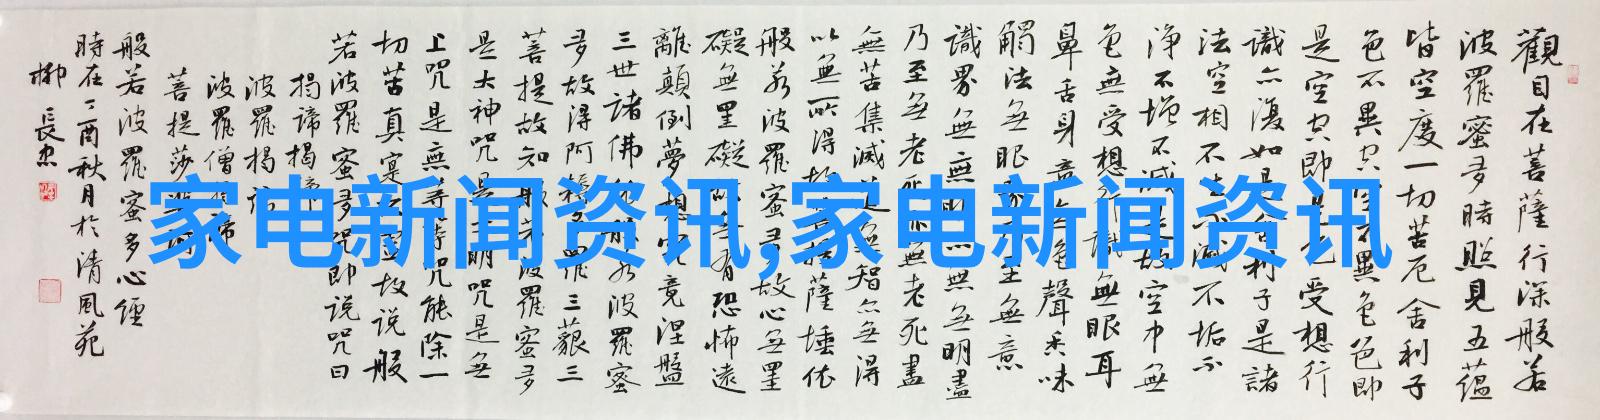 觀自在菩薩行深般若
波羅蜜多時照見五蘊
皆空度一切苦厄舍利子
色不異空空不異色色即
是空空即是色受想行
識亦復如是舍利子是諸
法空相不生不滅不垢不
淨不增不減是故空中無
色無受想行識無眼耳
鼻舌身意無色聲香味
觸法無眼界乃至無意
識界無無明亦無無明盡
乃至無老死亦無老死盡
無苦集滅道無智亦無得
以無所得故菩提薩埵依
般若波羅蜜多故心無罣
礙無罣礙故無有恐怖遠
離顛倒夢想究竟涅盤
三世諸佛依般若波羅蜜
多故得阿耨多羅三藐三
菩提故知般若波羅蜜多
是大神咒是大明咒是無
上咒是無等等咒能除一
切苦真實不虛故說般
若波羅蜜多咒即說咒曰
揭諦揭諦
波羅揭諦
波羅僧揭諦
菩提莎婆訶
般若波羅蜜多心經
時在丁酉秋月於清風苑
柳長忠
家电新闻资讯,家电新闻资讯